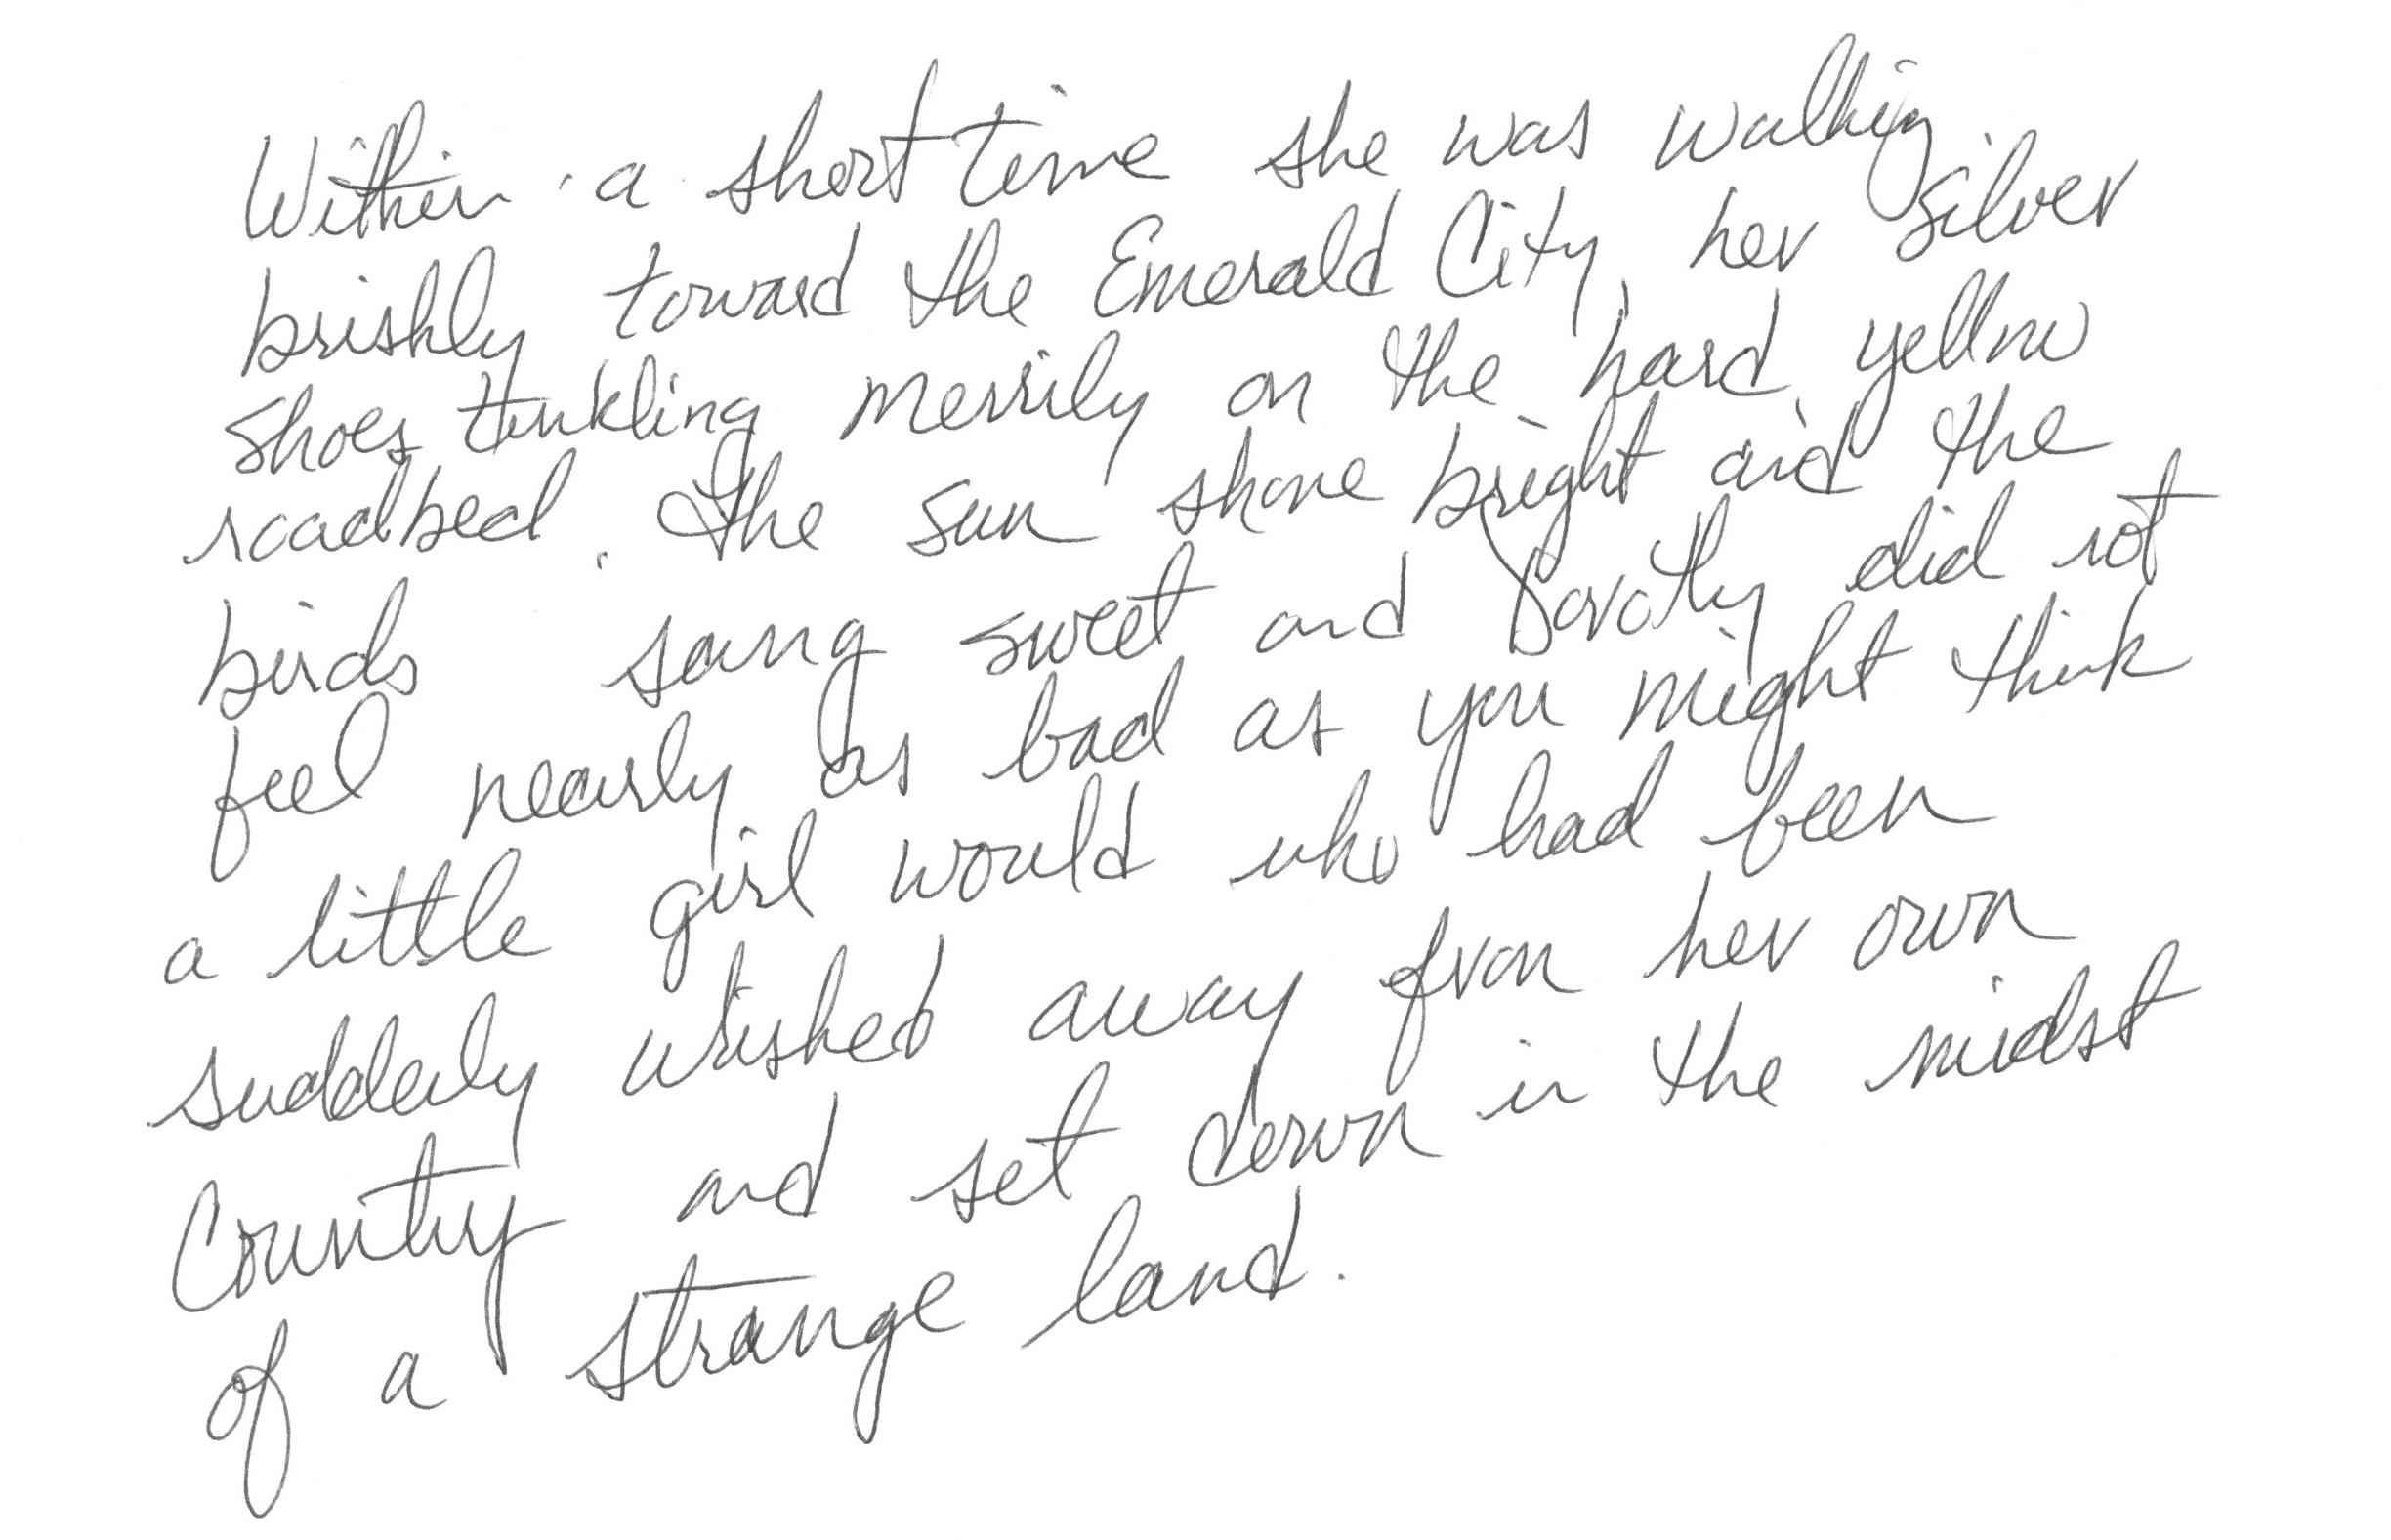 Within a short time she was walking
briskly toward the Emerald City, her silver
shoes tinkling merrily on the hard, yellow
roadbed. The sun shone bright and the
birds sang sweet and Dorothy did not
feel nearly as bad as you might think
a little girl would who had been
suddenly wished away from her own
country and set down in the midst
of a strange land.